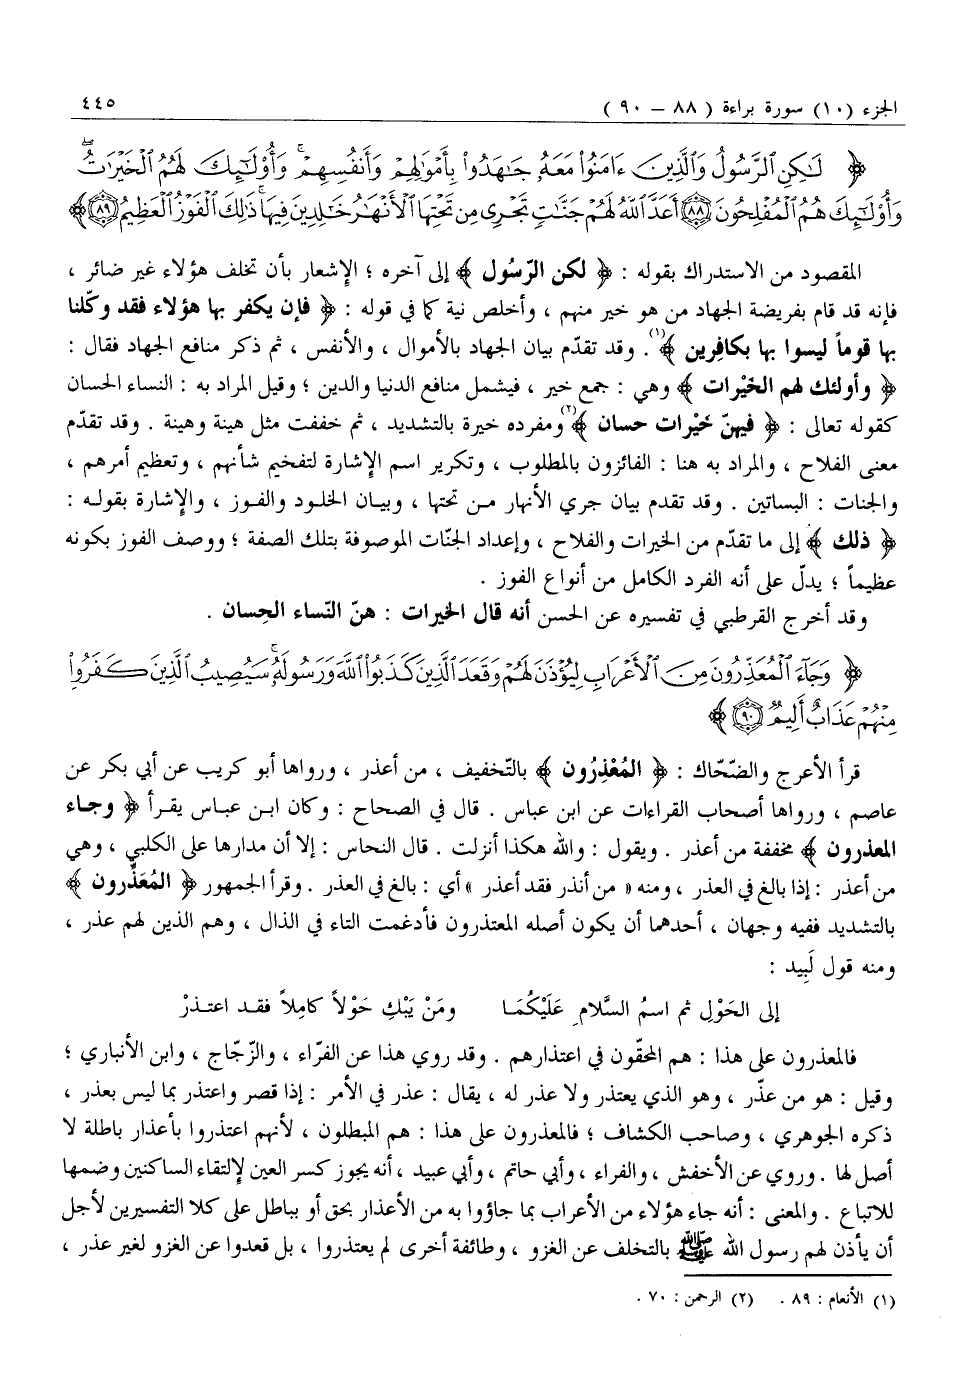 الجزء (١٠) سورة براءة ( ٨٨ – ٩٠ ) ٤٤٥
﴿ لَٰكِنِ ٱلرَّسُولُ وَٱلَّذِينَ ءَامَنُوا۟ مَعَهُۥ جَٰهَدُوا۟ بِأَمْوَٰلِهِمْ وَأَنفُسِهِمْ ۚ وَأُو۟لَٰٓئِكَ لَهُمُ ٱلْخَيْرَٰتُ ۖ
وَأُو۟لَٰٓئِكَ هُمُ ٱلْمُفْلِحُونَ ٨٨ أَعَدَّ ٱللَّهُ لَهُمْ جَنَّٰتٍ تَجْرِى مِن تَحْتِهَا ٱلْأَنْهَٰرُ خَٰلِدِينَ فِيهَا ۚ ذَٰلِكَ ٱلْفَوْزُ ٱلْعَظِيمُ ٨٩ ﴾
المقصود من الاستدراك بقوله : ﴿ لكن الرّسُول ﴾ إلى آخره ؛ الإشعار بأن تخلف هؤلاء غير ضائر ،
فإنه قد قام بفريضة الجهاد من هو خير منهم ، وأخلص نية كما في قوله : ﴿ فإن يكفر بها هؤلاء فقد وكّلنا
بها قوماً ليسوا بها بكافِرين ﴾(١) . وقد تقدّم بيان الجهاد بالأموال ، والأنفس ، ثم ذكر منافع الجهاد فقال :
﴿ وأولئك لهم الخيْرات ﴾ وهي : جمع خير ، فيشمل منافع الدنيا والدين ؛ وقيل المراد به : النساء الحسان
كقوله تعالى : ﴿ فيهنّ خَيْرات حسان ﴾(٢) ومفرده خيرة بالتشديد ، ثم خففت مثل هينة وهينة . وقد تقدّم
معنى الفلاح ، والمراد به هنا : الفائزون بالمطلوب ، وتكرير اسم الإشارة لتفخيم شأنهم ، وتعظيم أمرهم ،
والجنات : البساتين . وقد تقدم بيان جري الأنهار من تحتها ، وبيان الخلود والفوز ، والإشارة بقوله :
﴿ ذلك ﴾ إلى ما تقدّم من الخيرات والفلاح ، وإعداد الجنّات الموصوفة بتلك الصفة ؛ ووصف الفوز بكونه
عظيماً ؛ يدلّ على أنه الفرد الكامل من أنواع الفوز .
وقد أخرج القرطبي في تفسيره عن الحسن أنه قال الخيرات : هنّ النّساء الحِسان .
﴿ وَجَآءَ ٱلْمُعَذِّرُونَ مِنَ ٱلْأَعْرَابِ لِيُؤْذَنَ لَهُمْ وَقَعَدَ ٱلَّذِينَ كَذَبُوا۟ ٱللَّهَ وَرَسُولَهُۥ ۚ سَيُصِيبُ ٱلَّذِينَ كَفَرُوا۟
مِنْهُمْ عَذَابٌ أَلِيمٌ ٩٠ ﴾
قرأ الأعرج والضّحّاك : ﴿ المُعْذِرُون ﴾ بالتّخفيف ، من أعذر ، ورواها أبو كريب عن أبي بكر عن
عاصم ، ورواها أصحاب القراءات عن ابن عباس . قال في الصحاح : وكان ابن عباس يقرأ ﴿ وجاء
المعذرون ﴾ مخففة من أعذر . ويقول : والله هكذا أنزلت . قال النحاس : إلا أن مدارها على الكلبي ، وهي
من أعذر : إذا بالغ في العذر ، ومنه « من أنذر فقد أعذر » أي : بالغ في العذر . وقرأ الجمهور ﴿ المُعَذِّرون ﴾
بالتشديد ففيه وجهان ، أحدهما أن يكون أصله المعتذرون فأدغمت التاء في الذال ، وهم الذين لهم عذر ،
ومنه قول لَبِيد :
إلى الحَوْلِ ثم اسمُ السَّلامِ عَلَيْكُمَا ومَنْ يَبْكِ حَوْلاً كامِلاً فقد اعتذرْ
فالمعذرون على هذا : هم المحقّون في اعتذارهم . وقد روي هذا عن الفرّاء ، والزّجّاج ، وابن الأنباري ؛
وقيل : هو من عذّر ، وهو الذي يعتذر ولا عذر له ، يقال : عذر في الأمر : إذا قصر واعتذر بما ليس بعذر ،
ذكره الجوهري ، وصاحب الكشاف ؛ فالمعذرون على هذا : هم المبطلون ، لأنهم اعتذروا بأعذار باطلة لا
أصل لها . وروي عن الأخفش ، والفراء ، وأبي حاتم ، وأبي عبيد ، أنه يجوز كسر العين لإلتقاء الساكنين وضمها
للاتباع . والمعنى : أنه جاء هؤلاء من الأعراب بما جاؤوا به من الأعذار بحق أو بباطل على كلا التفسيرين لأجل
أن يأذن لهم رسول الله ﷺ بالتخلف عن الغزو ، وطائفة أخرى لم يعتذروا ، بل قعدوا عن الغزو لغير عذر ،
(١) الأنعام : ٨٩ . (٢) الرحمن : ٧٠ .